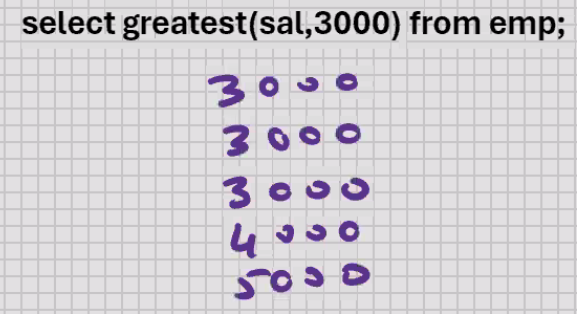 select greatest(sal,3000) from emp;
3000
3000
3000
4000
5000